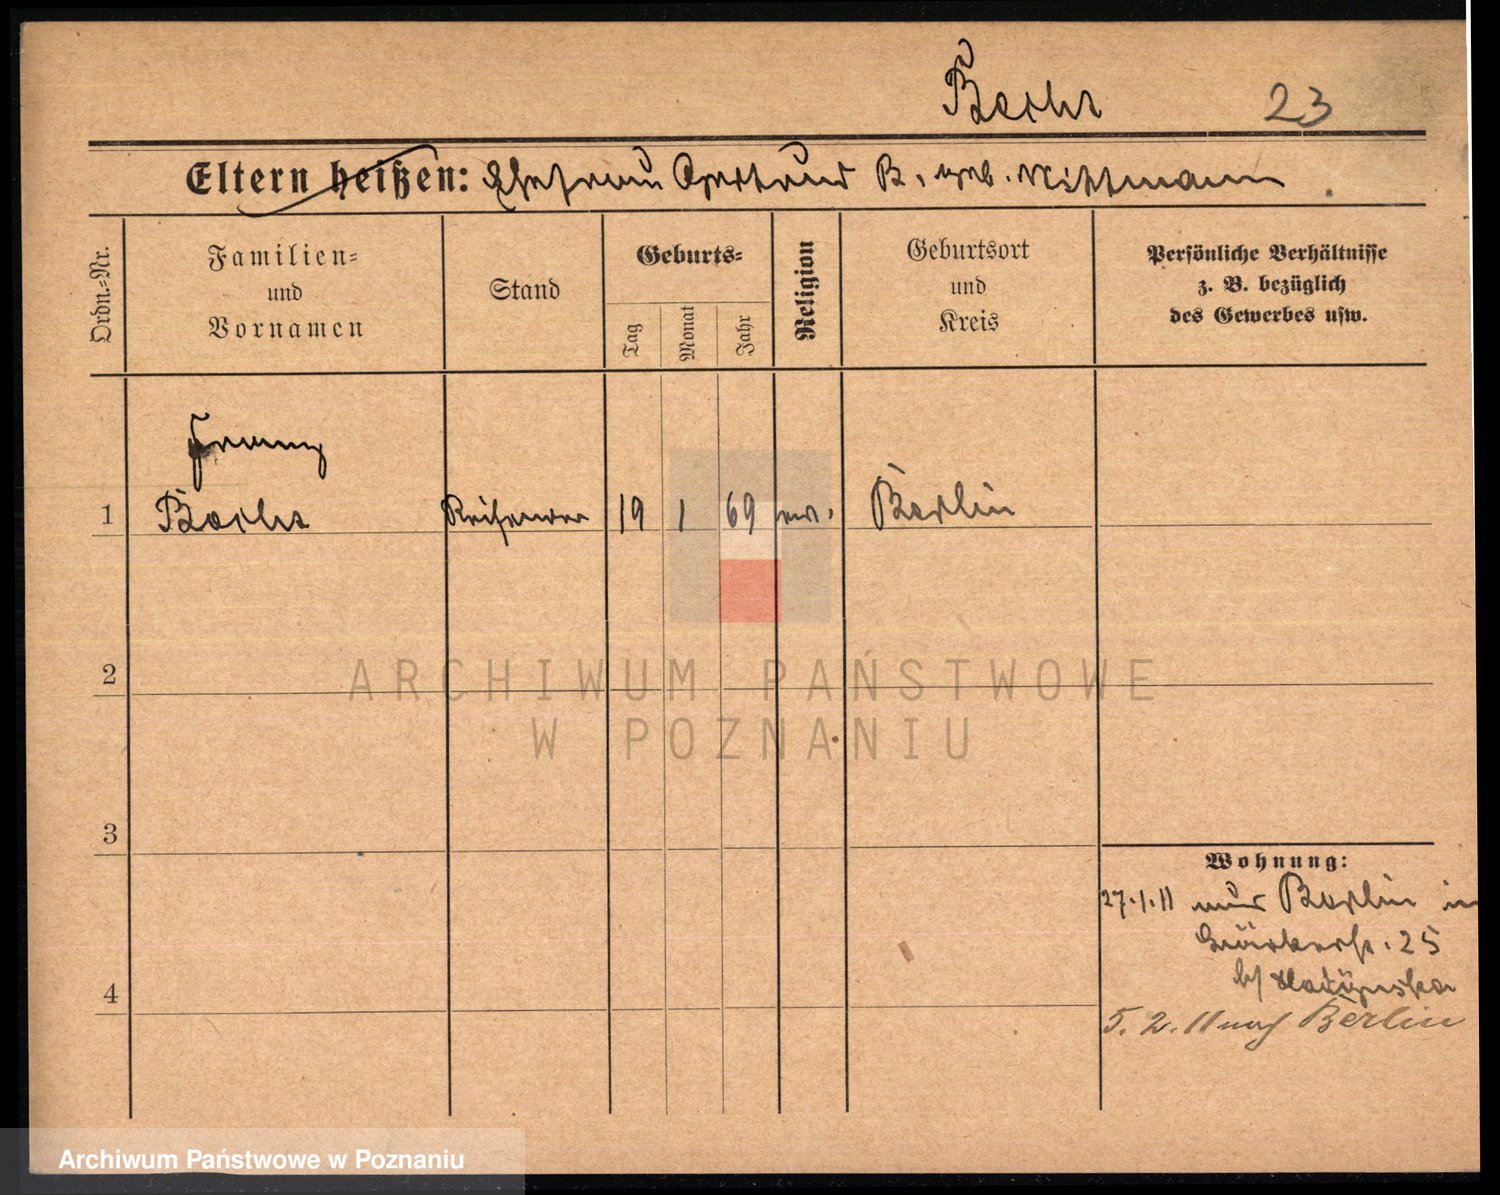 23
Eltern heißen: Ehefrau Gertrud B. geb. Wittmann
Ordn.-Nr.
Familien-
und
Vornamen
Stand
Geburts-
Tag
Monat
Jahr
Religion
Geburtsort
und
Kreis
Persönliche Verhältnisse
z. B. bezüglich
des Gewerbes usw.
Franz
1 Reisender 19 1 69 ev. Berlin
2
3
4
Wohnung:
27.1.11 aus Berlin in
25
5. 2. 11 nach Berlin
ARCHIWUM PAŃSTWOWE
W POZNANIU
Archiwum Państwowe w Poznaniu